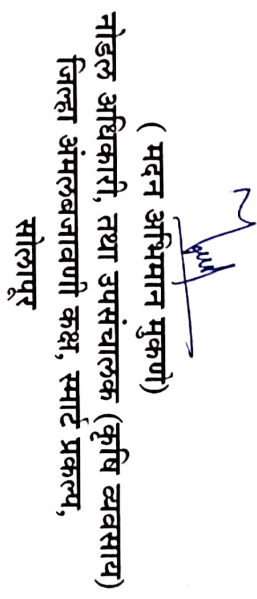 ( मदन अभिमान मुकणे)
नोडल अधिकारी, तथा उपसंचालक (कृषि व्यवसाय)
जिल्हा अंमलबजावणी कक्ष, स्मार्ट प्रकल्प,
सोलापूर